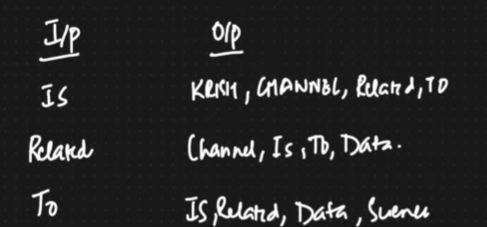 I/p O/p
IS KRISH, CHANNEL, Related, TO
Related Channel, Is, To, Data.
To IS, Related, Data, Science